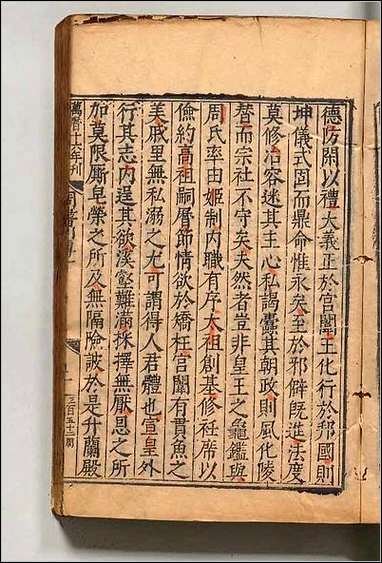 德防閑以禮大義正於宮闈王化行於邦國則
坤儀式固而鼎命惟永矣至於邪僻既進法度
莫修冶容迷其主心私謁蠹其朝政則風化陵
替而宗社不守矣夫然者豈非皇王之龜鑑與
周氏率由姬制內職有序太祖創基修衽席以
儉約高祖嗣曆節情欲於矯枉宮闈有貫魚之
美戚里無私溺之尤可謂得人君體也宣皇外
行其志內逞其欲溪壑難滿採擇無厭恩之所
加莫限厮皂榮之所及無隔險詖於是升蘭殿
萬曆十六年刊